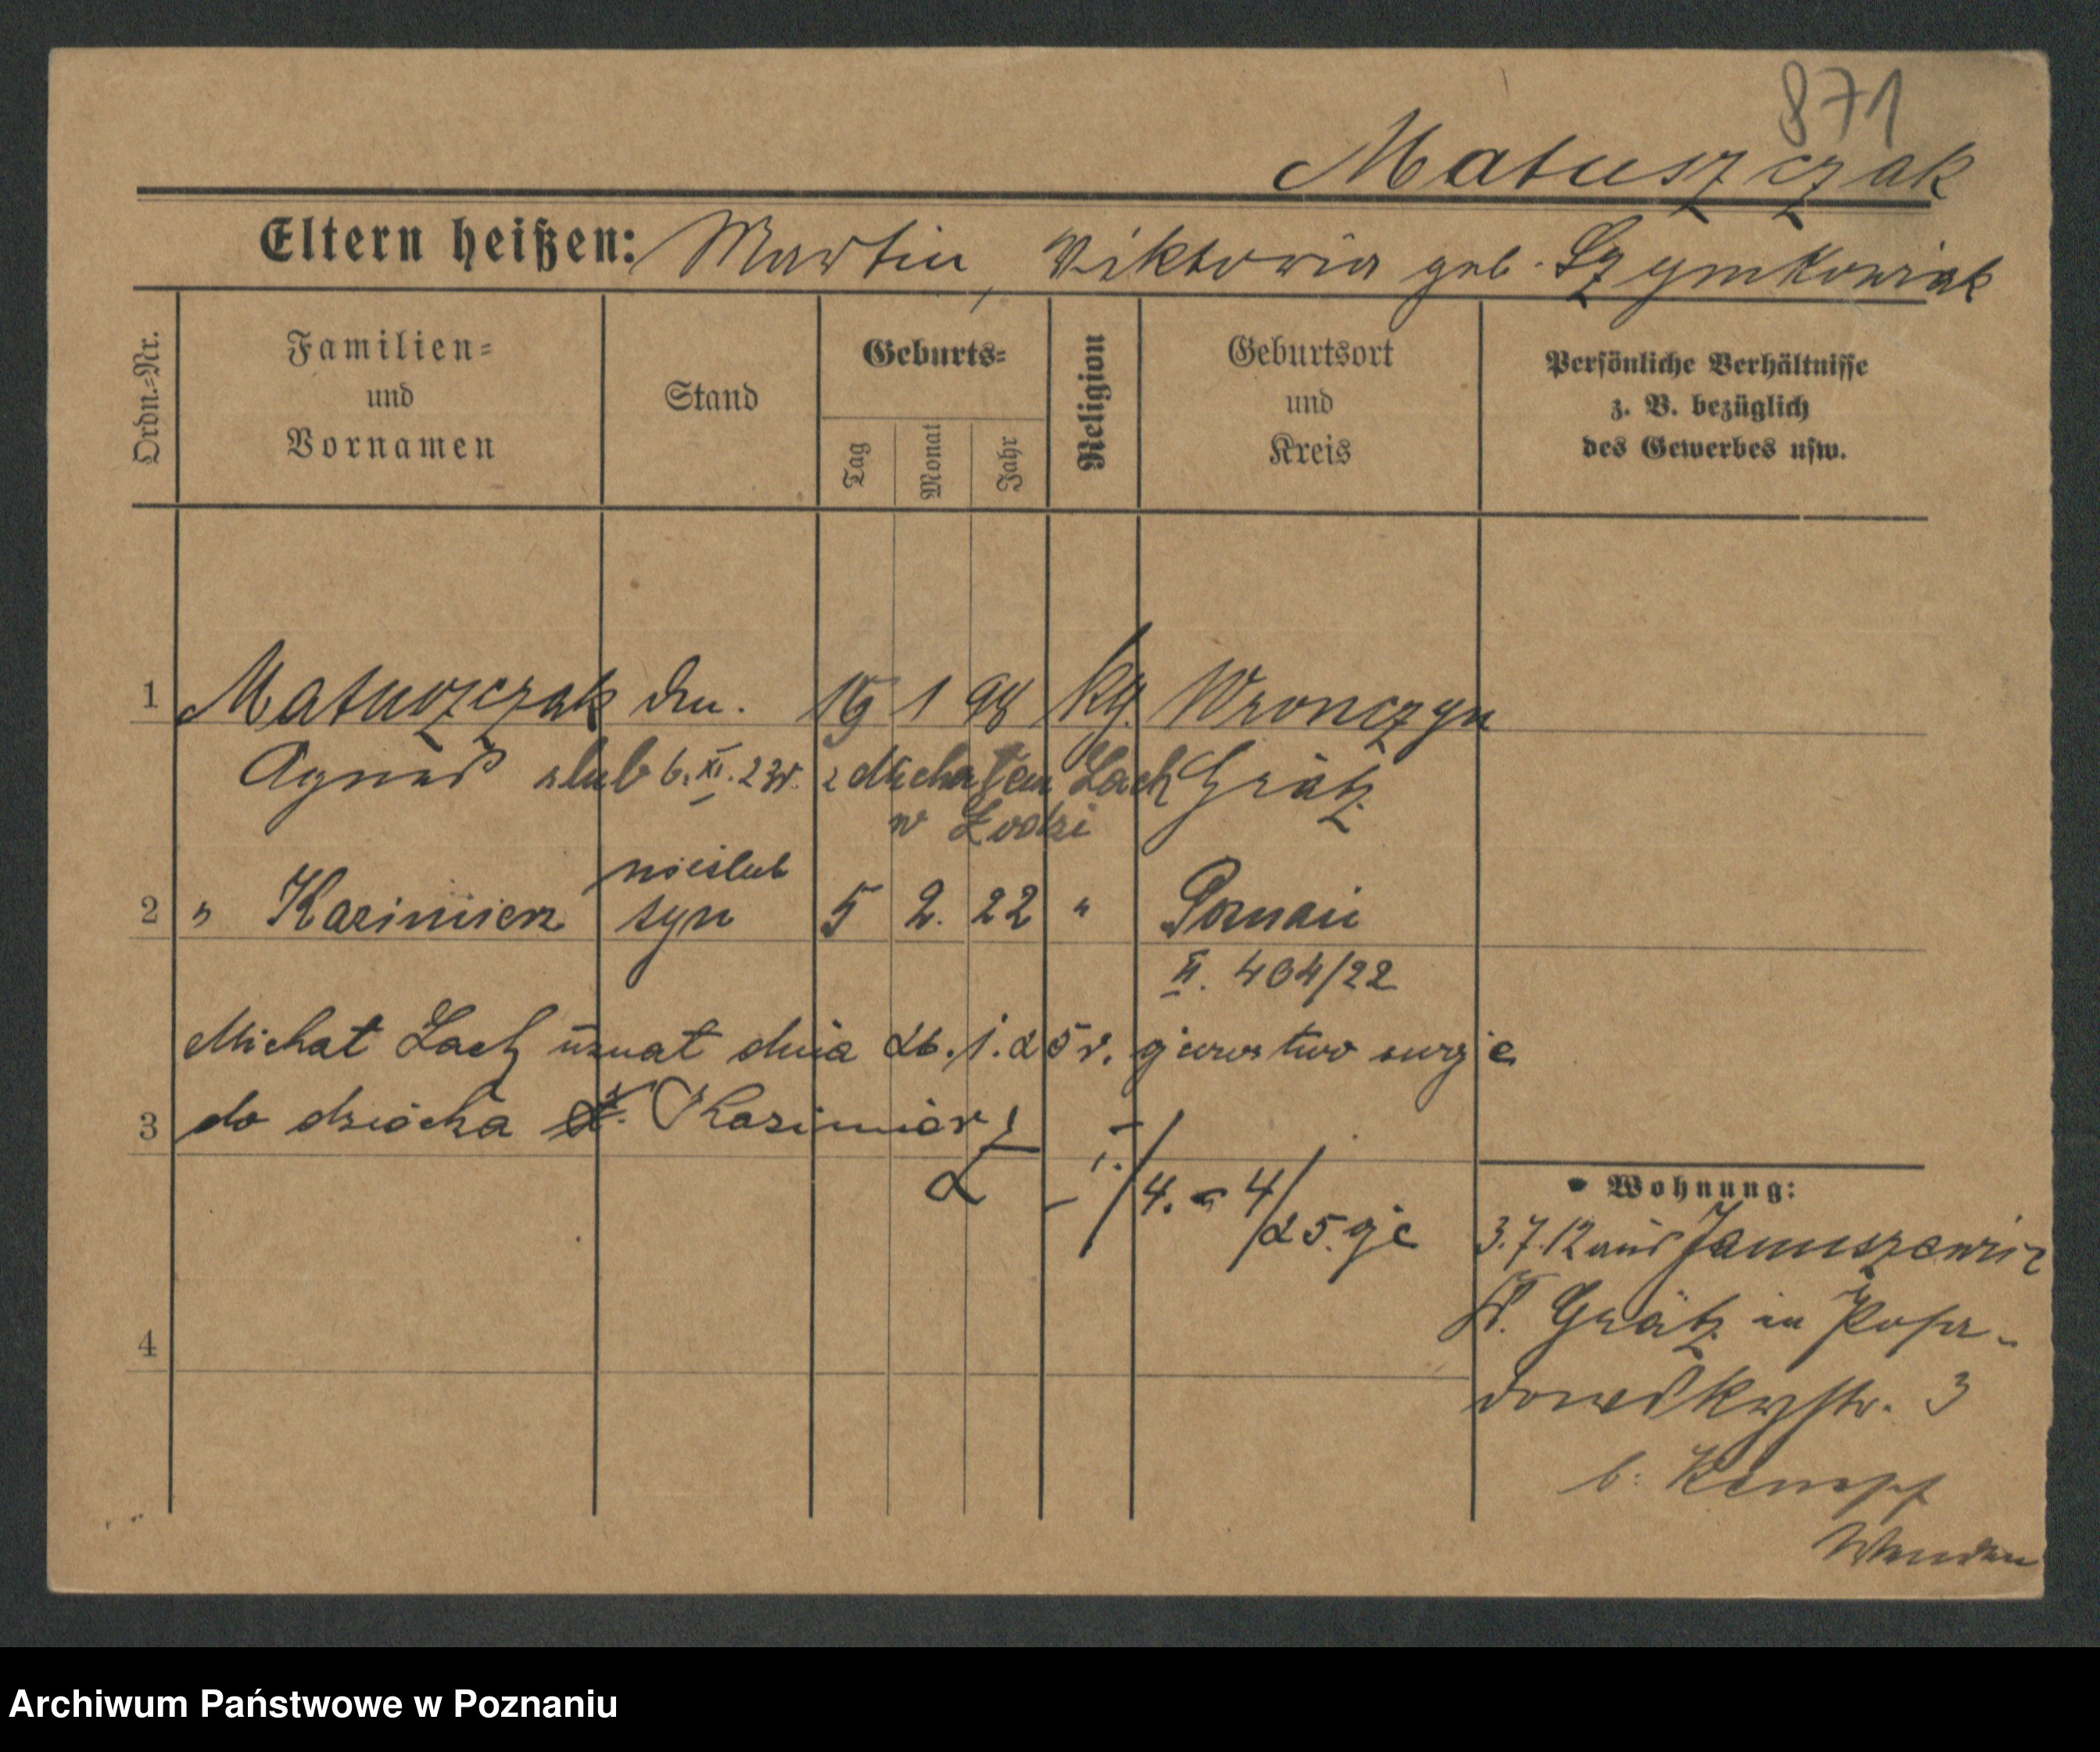 871
Matuszczak
Eltern heißen: Martin, Viktoria geb. Szymkowiak
Ordn.-Nr.
Familien-
und
Vornamen
Stand
Geburts-
Tag
Monat
Jahr
Religion
Geburtsort
und
Kreis
Persönliche Verhältnisse
z. B. bezüglich
des Gewerbes usw.
1 Matuszczak 19 1 98 Wronczyn
Agnes ślub 6. XI. 23 r. z Michałem Lach Grätz
w Łodzi
nieślub
2 " Kazimierz syn 5 2. 22 " Poznań
II. 404/22
Michał Lach uznał dnia 26. 1. 25 r. ojcowstwo swoje
do dziecka Kazimierz
3
4
Wohnung:
3.7.12 aus Januszewic
Kr. Grätz in Posa-
dowskystr. 3
b. Kempf
Archiwum Państwowe w Poznaniu